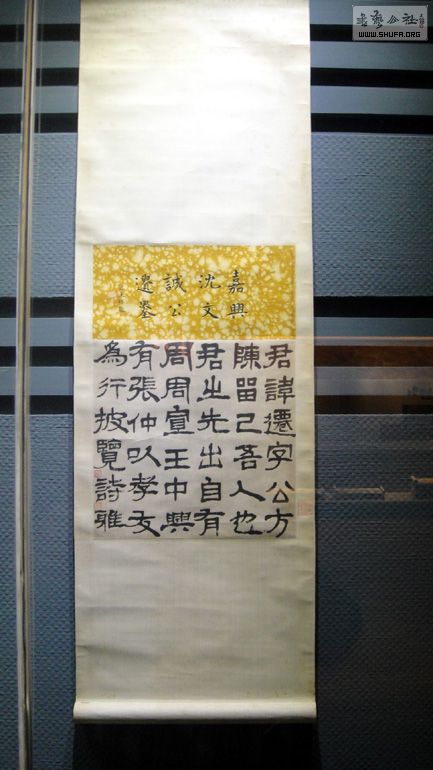 書藝公社
WWW.SHUFA.ORG
嘉興
沈文
誠公
遺墨
君諱遷字公方
陳留己吾人也
君之先出自有
周周宣王中興
有張仲以孝友
為行披覽詩雅